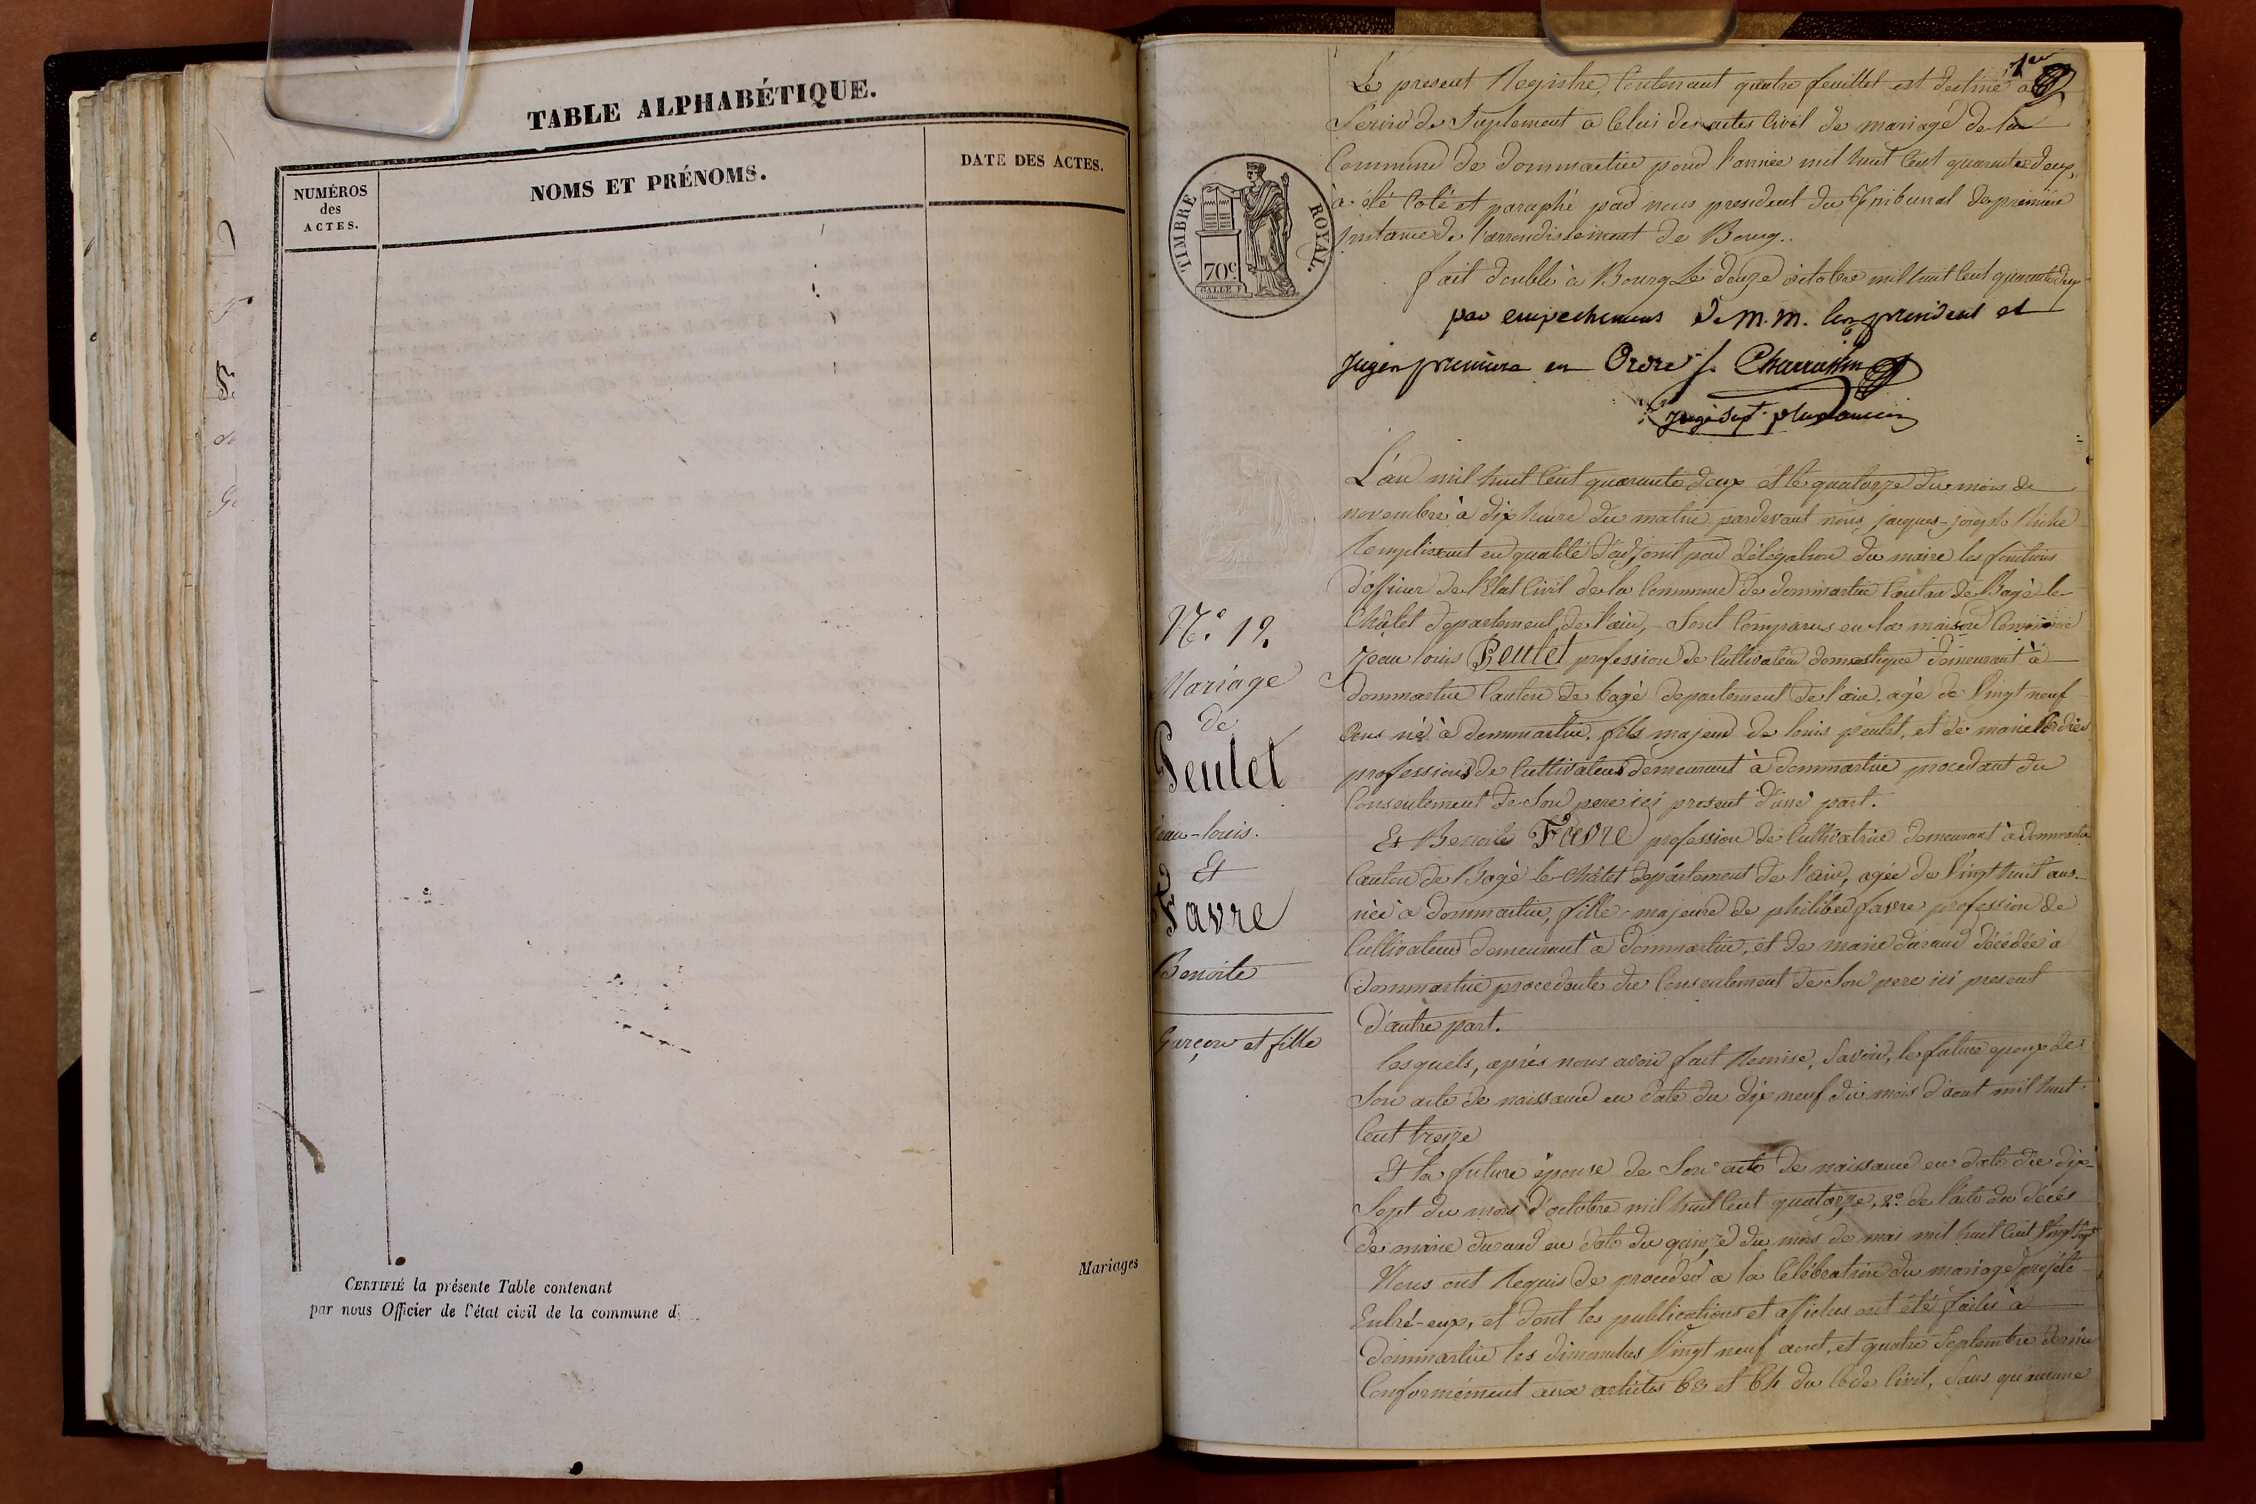 TABLE ALPHABÉTIQUE.
NUMÉROS
des
ACTES.
NOMS ET PRÉNOMS.
DATE DES ACTES.
CERTIFIÉ la présente Table contenant
par nous Officier de l'état civil de la commune d
Mariages
1er
Le present Registre, Contenant quatre feuillet est destiné a
Servir de Suplement a Celui des actes Civil de mariage de la
Commune de dommartin pour l'année mil huit Cent quarante deux,
à été Coté et paraphé par nous president du Tribunal de premiere
instance de l'arrondissement de Bourg.
fait double à Bourg Le douze octobre mil huit Cent quarante deux
par empechement de M.M. les president et
juges premiers en Ordre J. Charrassin
juge supt. plus ancien
TIMBRE ROYAL.
70c
L'an mil huit Cent quarante deux et le quatorze du mois de
novembre à dix heure du matin pardevant nous jacques-joseph
Remplissant en qualité d'adjoint par délégation du maire les fonctions
d'officier de l'Etat Civil de la Commune de dommartin Canton de Bagé-le-
Châtel departement de l'ain, Sont Comparus en la maison Commune
Jean louis Peulet profession de Cultivateur domestique demeurant à
dommartin Canton de bagé departement de l'ain, agé de Vingt neuf
ans né à dommartin, fils majeur de louis peulet, et de marie
profession de Cultivateurs demeurant à dommartin procedant du
Consentement de Son pere ici present d'une part.
Et Benoite Favre profession de Cultivatrice demeurant à dommartin
Canton de Bagé-le-Châtel departement de l'ain, agée de Vingt huit ans
née à dommartin, fille majeure de philibert favre profession de
Cultivateur demeurant à dommartin, et de marie durand décédée à
dommartin procedante du Consentement de Son pere ici present
d'autre part.
lesquels, après nous avoir fait Remise, Savoir, le future epoux de
Son acte de naissance en date du dix neuf du mois d'aout mil huit
Cent treize
Et la future épouse de Son acte de naissance en date du dix
Sept du mois d'octobre mil huit Cent quatorze, 2°. de l'acte du décès
de marie durand en date du quinze du mois de mai mil huit Cent Vingt sept
Nous ont Requis de proceder a la Célébration du mariage projété
Entré-eux, et dont les publications et afiches ont été faites à
dommartin les dimanches Vingt neuf aout, et quatre Septembre dernier
Conformément aux articles 63 et 64 du Code Civil, Sans qu'aucune
N°. 12.
Mariage
de
Peulet
Jean-louis.
Et
Favre
Benoite
Garçon et fille